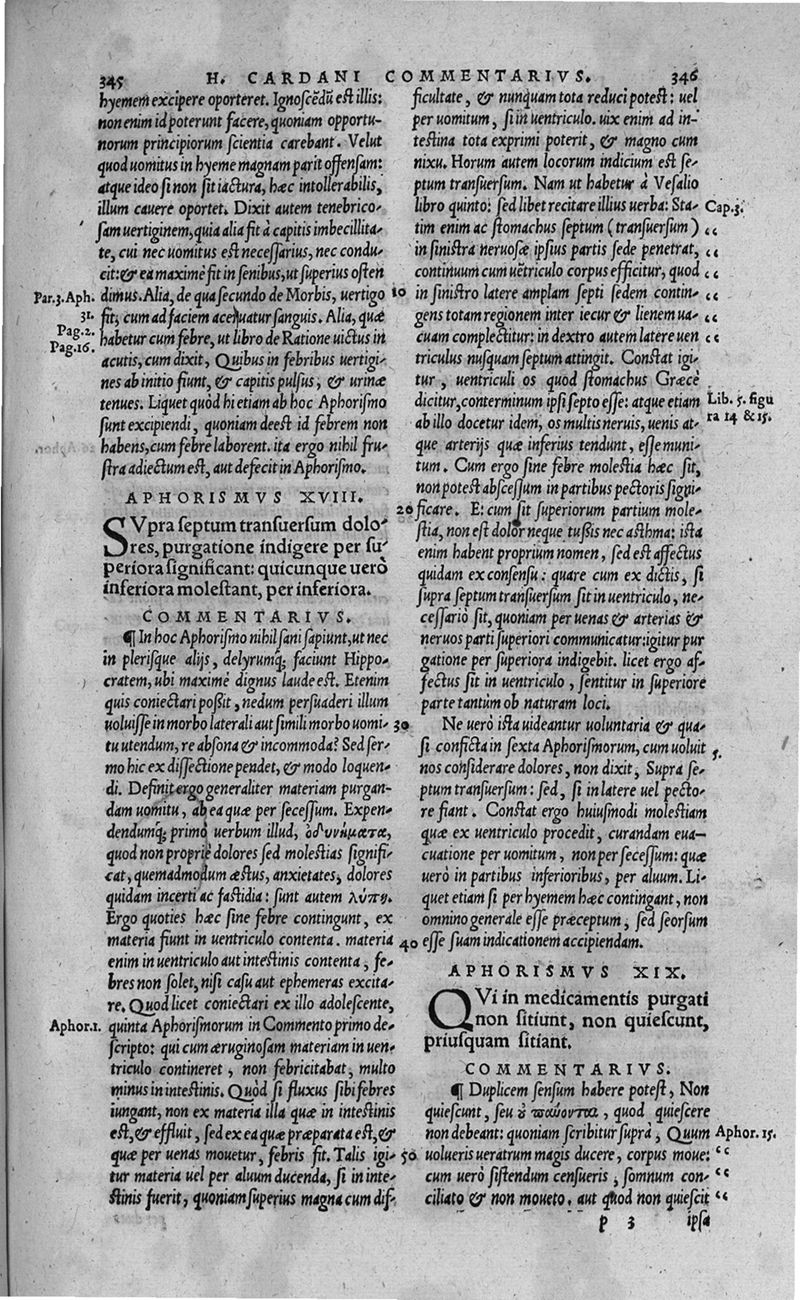 345 H. CARDANI COMMENTARIVS. 346
hyemem excipere oporteret. Ignoscēdū est illis:
non enim id poterunt facere, quoniam opportu-
norum principiorum scientia carebant. Velut
quod uomitus in hyeme magnam parit offensam:
atque ideo si non sit iactura, hæc intollerabilis,
illum cauere oportet. Dixit autem tenebrico-
sam uertiginem, quia alia fit à capitis imbecillita-
te, cui nec uomitus est necessarius, nec condu-
cit: & ea maximè fit in senibus, ut superius osten
Par. 3. Aph.
31.
dimus. Alia, de qua secundo de Morbis, uertigo 10
fit, cum ad faciem aceruatur sanguis. Alia, quæ
Pag. 2.
Pag. 16.
habetur cum febre, ut libro de Ratione uictus in
acutis, cum dixit, Quibus in febribus uertigi-
nes ab initio fiunt, & capitis pulsus, & urinæ
tenues. Liquet quòd hi etiam ab hoc Aphorismo
sunt excipiendi, quoniam deest id febrem non
habens, cum febre laborent. ita ergo nihil fru-
stra adiectum est, aut defecit in Aphorismo.
APHORISMVS XVIII.
SVpra septum transuersum dolo-
res, purgatione indigere per su-
periora significant: quicunque uerò
inferiora molestant, per inferiora.
COMMENTARIVS.
¶ In hoc Aphorismo nihil sani sapiunt, ut nec
in plerisque alijs, delyrumq; faciunt Hippo-
cratem, ubi maximè dignus laude est. Etenim
quis coniectari possit, nedum persuaderi illum
uoluisse in morbo laterali aut simili morbo uomi- 30
tu utendum, re absona & incommoda? Sed ser-
mo hic ex dissectione pendet, & modo loquen-
di. Definit ergo generaliter materiam purgan-
dam uomitu, ab ea quæ per secessum. Expen-
dendumq; primò uerbum illud, ὀδυνήματα,
quod non propriè dolores sed molestias signifi-
cat, quemadmodum æstus, anxietates, dolores
quidam incerti ac fastidia: sunt autem λύπη.
Ergo quoties hæc sine febre contingunt, ex
materia fiunt in uentriculo contenta. materia 40
enim in uentriculo aut intestinis contenta, fe-
bres non solet, nisi casu aut ephemeras excita-
re. Quod licet coniectari ex illo adolescente,
Aphor. 1. quinta Aphorismorum in Commento primo de-
scripto: qui cum æruginosam materiam in uen-
triculo contineret, non febricitabat, multo
minus in intestinis. Quòd si fluxus sibi febres
iungant, non ex materia illa quæ in intestinis
est, & effluit, sed ex ea quæ præparata est, &
quæ per uenas mouetur, febris fit. Talis igi- 50
tur materia uel per aluum ducenda, si in inte-
stinis fuerit, quoniam superius magna cum dif-
ficultate, & nunquam tota reduci potest: uel
per uomitum, si in uentriculo. uix enim ad in-
testina tota exprimi poterit, & magno cum
nixu. Horum autem locorum indicium est se-
ptum transuersum. Nam ut habetur à Vesalio
libro quinto: sed libet recitare illius uerba: Sta- Cap. 3.
tim enim ac stomachus septum (transuersum) “
in sinistra neruosæ ipsius partis sede penetrat, “
continuum cum uētriculo corpus efficitur, quod “
in sinistro latere amplam septi sedem contin- “
gens totam regionem inter iecur & lienem ua- “
cuam complectitur: in dextro autem latere uen “
triculus nusquam septum attingit. Constat igi-
tur, uentriculi os quod stomachus Græcè
dicitur, conterminum ipsi septo esse: atque etiam Lib. 5. figu
ab illo docetur idem, os multis neruis, uenis at- ra 14 & 15.
que arterijs quæ inferius tendunt, esse muni-
tum. Cum ergo sine febre molestia hæc sit,
non potest abscessum in partibus pectoris signi-
20 ficare. Et cum sit superiorum partium mole-
stia, non est dolor neque tussis nec asthma: ista
enim habent proprium nomen, sed est affectus
quidam ex consensu: quare cum ex dictis, si
supra septum transuersum sit in uentriculo, ne-
cessariò sit, quoniam per uenas & arterias &
neruos parti superiori communicatur: igitur pur
gatione per superiora indigebit. licet ergo af-
fectus sit in uentriculo, sentitur in superiore
parte tantùm ob naturam loci.
Ne uerò ista uideantur uoluntaria & qua-
si conficta in sexta Aphorismorum, cum uoluit 5.
nos considerare dolores, non dixit, Supra se-
ptum transuersum: sed, si in latere uel pecto-
re fiant. Constat ergo huiusmodi molestiam
quæ ex uentriculo procedit, curandam eua-
cuatione per uomitum, non per secessum: quæ
uerò in partibus inferioribus, per aluum. Li-
quet etiam si per hyemem hæc contingant, non
omnino generale esse præceptum, sed seorsum
esse suam indicationem accipiendam.
APHORISMVS XIX.
QVi in medicamentis purgati
non sitiunt, non quiescunt,
priusquam sitiant.
COMMENTARIVS.
¶ Duplicem sensum habere potest, Non
quiescunt, seu ὀ παύονται, quod quiescere
non debeant: quoniam scribitur suprà, Quum Aphor. 15.
uolueris ueratrum magis ducere, corpus moue: “
cum uerò sistendum censueris, somnum con- “
ciliato & non moueto. aut quod non quiescit “
p 3 ipsa